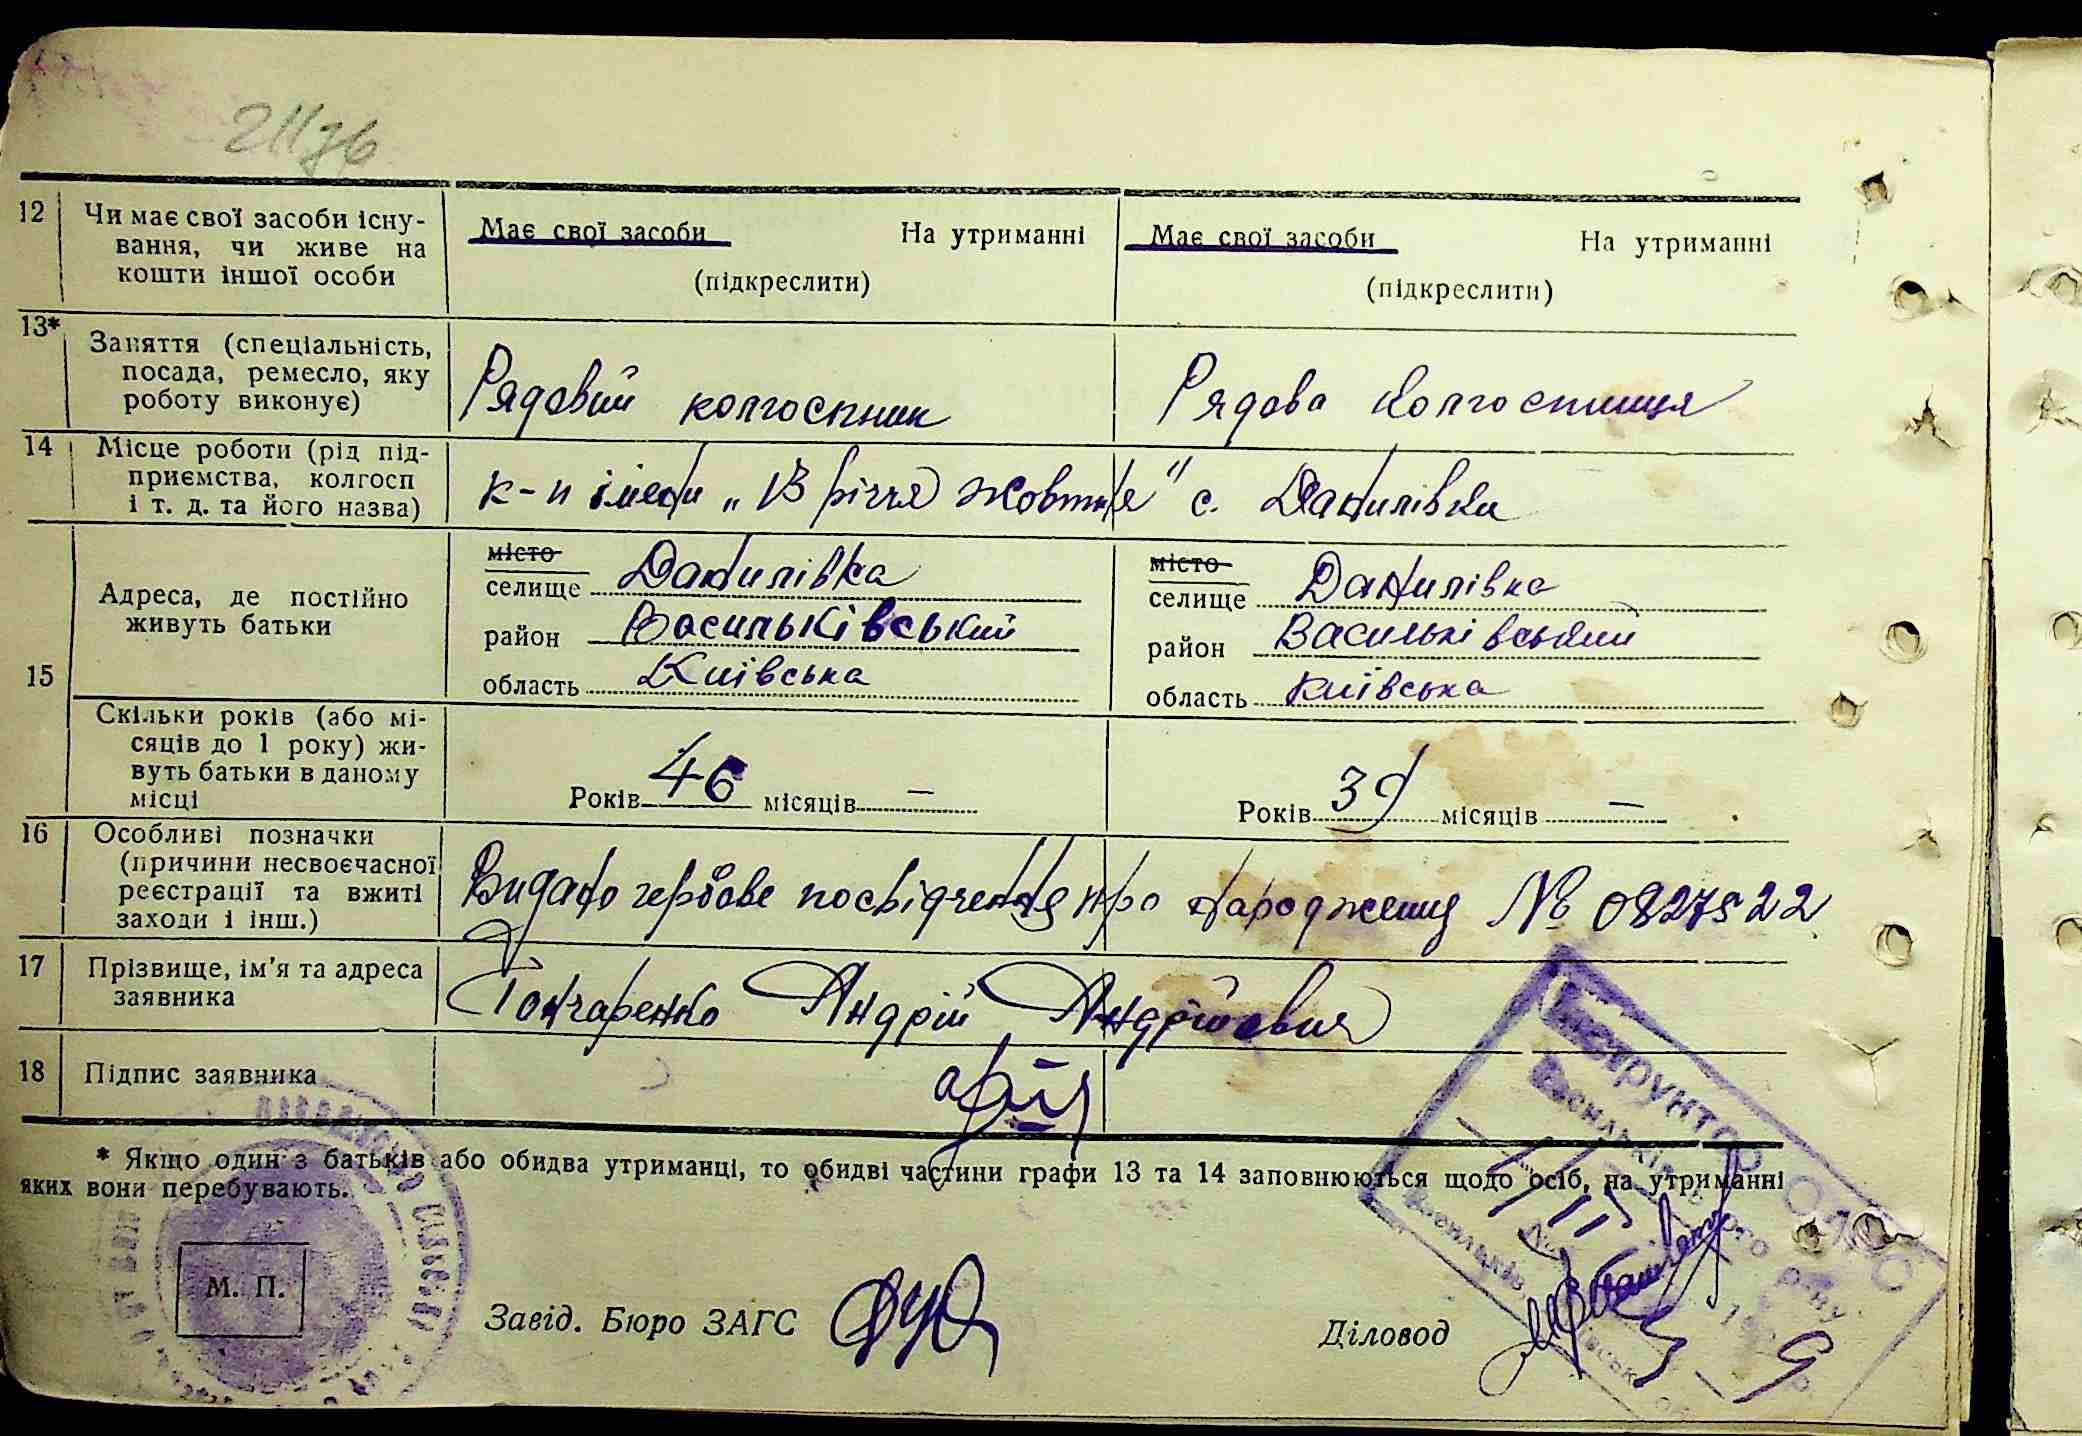 12 Чи має свої засоби існу-
вання, чи живе на
кошти іншої особи
Має свої засоби На утриманні
(підкреслити)
Має свої засоби На утриманні
(підкреслити)
13* Заняття (спеціальність,
посада, ремесло, яку
роботу виконує)
Рядовий колгоспник
Рядова колгоспниця
14 Місце роботи (рід під-
приємства, колгосп
і т. д. та його назва)
к-п імени „13 річчя жовтня" с. Данилівка
15 Адреса, де постійно
живуть батьки
місто
селище Данилівка
район Васильківський
область Київська
місто
селище Данилівка
район Васильківський
область Київська
Скільки років (або мі-
сяців до 1 року) жи-
вуть батьки в даному
місці
Років 46 місяців —
Років 39 місяців —
16 Особливі позначки
(причини несвоєчасної
реєстрації та вжиті
заходи і інш.)
Видано гербове посвідчення про народження № 0827522
17 Прізвище, ім'я та адреса
заявника
Гончаренко Андрій Андрійович
18 Підпис заявника
* Якщо один з батьків або обидва утриманці, то обидві частини графи 13 та 14 заповнюються щодо осіб, на утриманні
яких вони перебувають.
М. П.
Завід. Бюро ЗАГС
Діловод